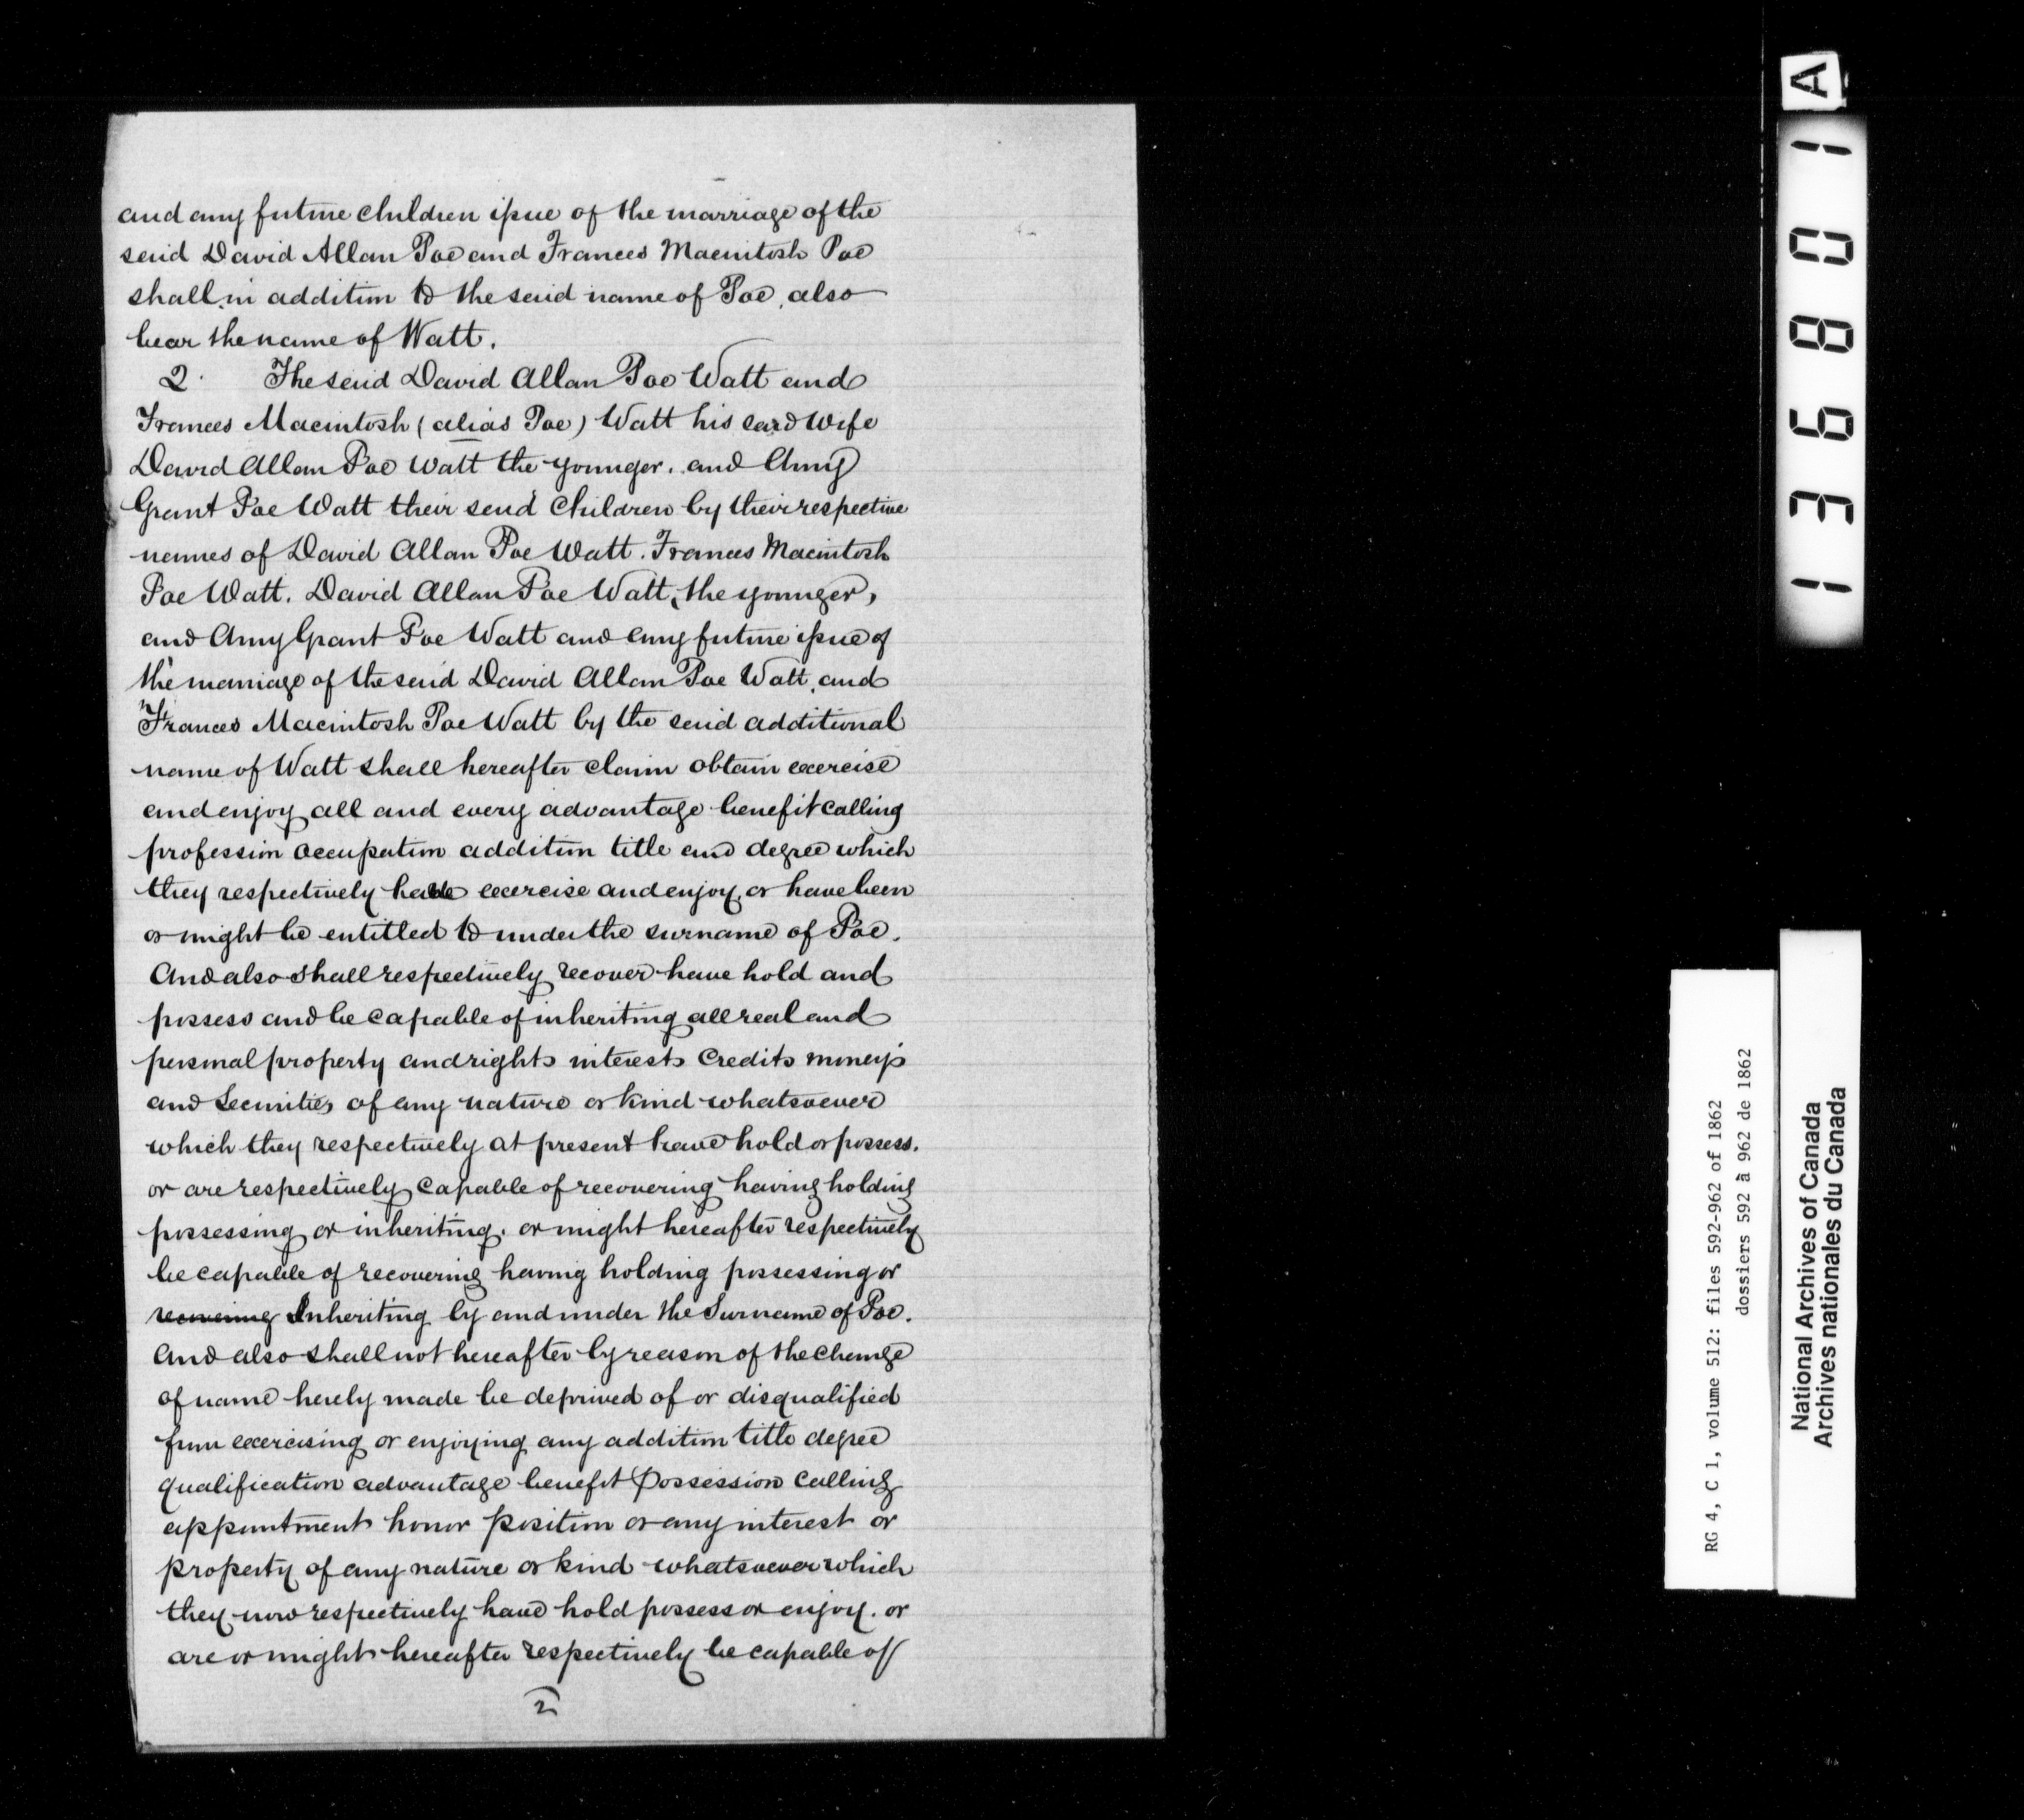 and any future children issue of the marriage of the
said David Allan Poe and Frances Macintosh Poe
shall in addition to the said name of Poe, also
bear the name of Watt.
2. The said David Allan Poe Watt and
Frances Macintosh (alias Poe) Watt his said Wife
David Allan Poe Watt the younger. and Amy
Grant Poe Watt their said Children by their respective
names of David Allan Poe Watt. Frances Macintosh
Poe Watt. David Allan Poe Watt, the younger,
and Amy Grant Poe Watt and any future issue of
the marriage of the said David Allan Poe Watt, and
Frances Macintosh Poe Watt by the said additional
name of Watt shall hereafter claim obtain exercise
and enjoy all and every advantage benefit calling
profession occupation addition title and degree which
they respectively have exercise and enjoy, or have been
or might be entitled to under the surname of Poe.
And also shall respectively recover have hold and
possess and be capable of inheriting all real and
personal property and rights interests Credits moneys
and Securities of any nature or kind whatsoever
which they respectively at present have hold or possess.
or are respectively capable of recovering having holding
possessing or inheriting. or might hereafter respectively
be capable of recovering having holding possessing or
recovering Inheriting by and under the Surname of Poe.
And also shall not hereafter by reason of the change
of name hereby made be deprived of or disqualified
from exercising or enjoying any addition title degree
qualification advantage benefit Possession calling
appointment honor position or any interest or
property of any nature or kind whatsoever which
they now respectively have hold possess or enjoy. or
are or might hereafter respectively be capable of
2
136801 A
RG 4, C 1, volume 512: files 592-962 of 1862
dossiers 592 à 962 de 1862
National Archives of Canada
Archives nationales du Canada